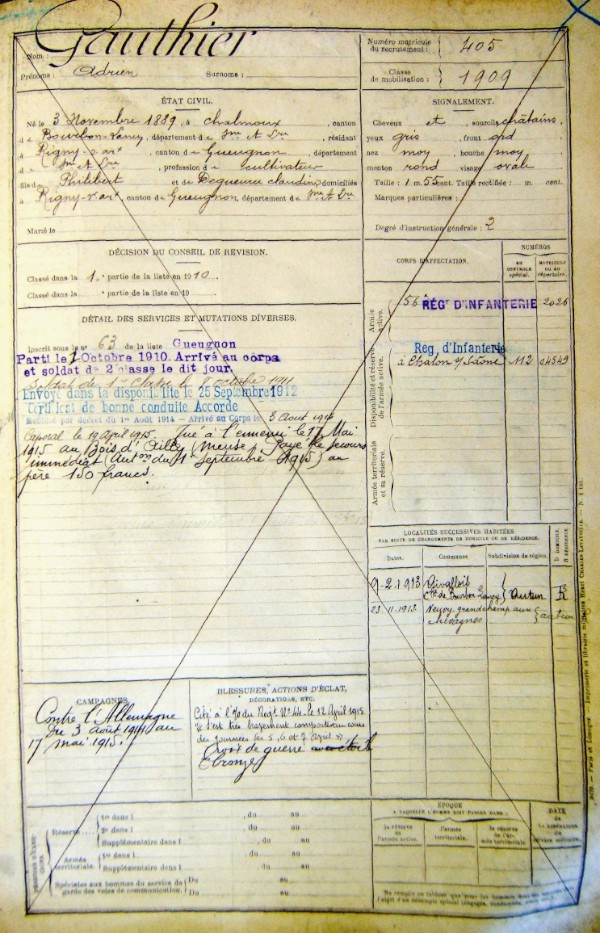 Gauthier
Nom :
Prénoms : Adrien Surnoms :
Numéro matricule du recrutement : 405
Classe de mobilisation : 1909
ÉTAT CIVIL.
Né le 3 Novembre 1889, à Chalmoux, canton
d e Bourbon-Lancy, département d e Sne & Lre, résidant
à Rigny s/ arx, canton de Gueugnon, département
d e Sne & Lre, profession de cultivateur
fils de Philibert et de Degueurce claudine domiciliés
à Rigny s/ arx, canton de Gueugnon département de Sne & Lre
Marié le
SIGNALEMENT.
Cheveux et sourcils châtains,
yeux gris, front ord
nez moy, bouche moy
menton rond visage ovale
Taille : 1m. 55 cent. Taille rectifiée : m. cent.
Marques particulières :
Degré d'instruction générale : 2
DÉCISION DU CONSEIL DE RÉVISION.
Classé dans la 1e partie de la liste en 1910.
Classé dans la partie de la liste en 19
DÉTAIL DES SERVICES ET MUTATIONS DIVERSES.
Inscrit sous le n° 63 de la liste Gueugnon
Parti le 7 Octobre 1910. Arrivé au corps
et soldat de 2e classe le dit jour.
Soldat de 1e classe le octobre 1911
Envoyé dans la disponibilité le 25 Septembre 1912
Certificat de bonne conduite Accordé
Mobilisé par décret du 1er Août 1914 – Arrivé au Corps le 3 Août 1914
Caporal le 19 April 1915. Tué à l'ennemi le 17 Mai
1915 au Bois d'Ailly (Meuse). Payé le secours
immédiat Auton du 11 Septembre 1915) au
père 150 francs.
CORPS D'AFFECTATION.
NUMÉROS
AU CONTRÔLE spécial.
MATRICULE OU AU répertoire.
Armée active.
56e RÉGt D'INFANTERIE 2026
Disponibilité et réserve de l'armée active.
Reg. d'Infanterie
à Chalon s/ Saône 112 04549
Armée territoriale et sa réserve.
LOCALITÉS SUCCESSIVES HABITÉES
PAR SUITE DE CHANGEMENTS DE DOMICILE OU DE RÉSIDENCE.
Dates. Communes Subdivision de région. D DOMICILE. R RÉSIDENCE.
9-2-1913
de Bourbon Lancy } Autun R
23-11-1913 autun
CAMPAGNES.
Contre l'Allemagne
du 3 août 1914 au
17 mai 1915.
BLESSURES, ACTIONS D'ÉCLAT,
DÉCORATIONS, ETC.
Cité à l'O du Regt No 44 le 12 April 1915
"s'est très bravement comporté au cours
des journées les 5, 6 et 7 April"
Croix de guerre
(bronze)
Réserve
1re dans l , du au
2e dans l , du au
Supplémentaire dans l , du au
Armée territoriale.
1re dans l , du au
Supplémentaire dans l , du au
Spéciales aux hommes du service de
garde des voies de communication.
Du au
Du au
ÉPOQUE
À LAQUELLE L'HOMME DOIT PASSER DANS :
la réserve de l'armée active.
l'armée territoriale.
la réserve de l'armée territoriale.
DATE de la LIBÉRATION du service militaire.